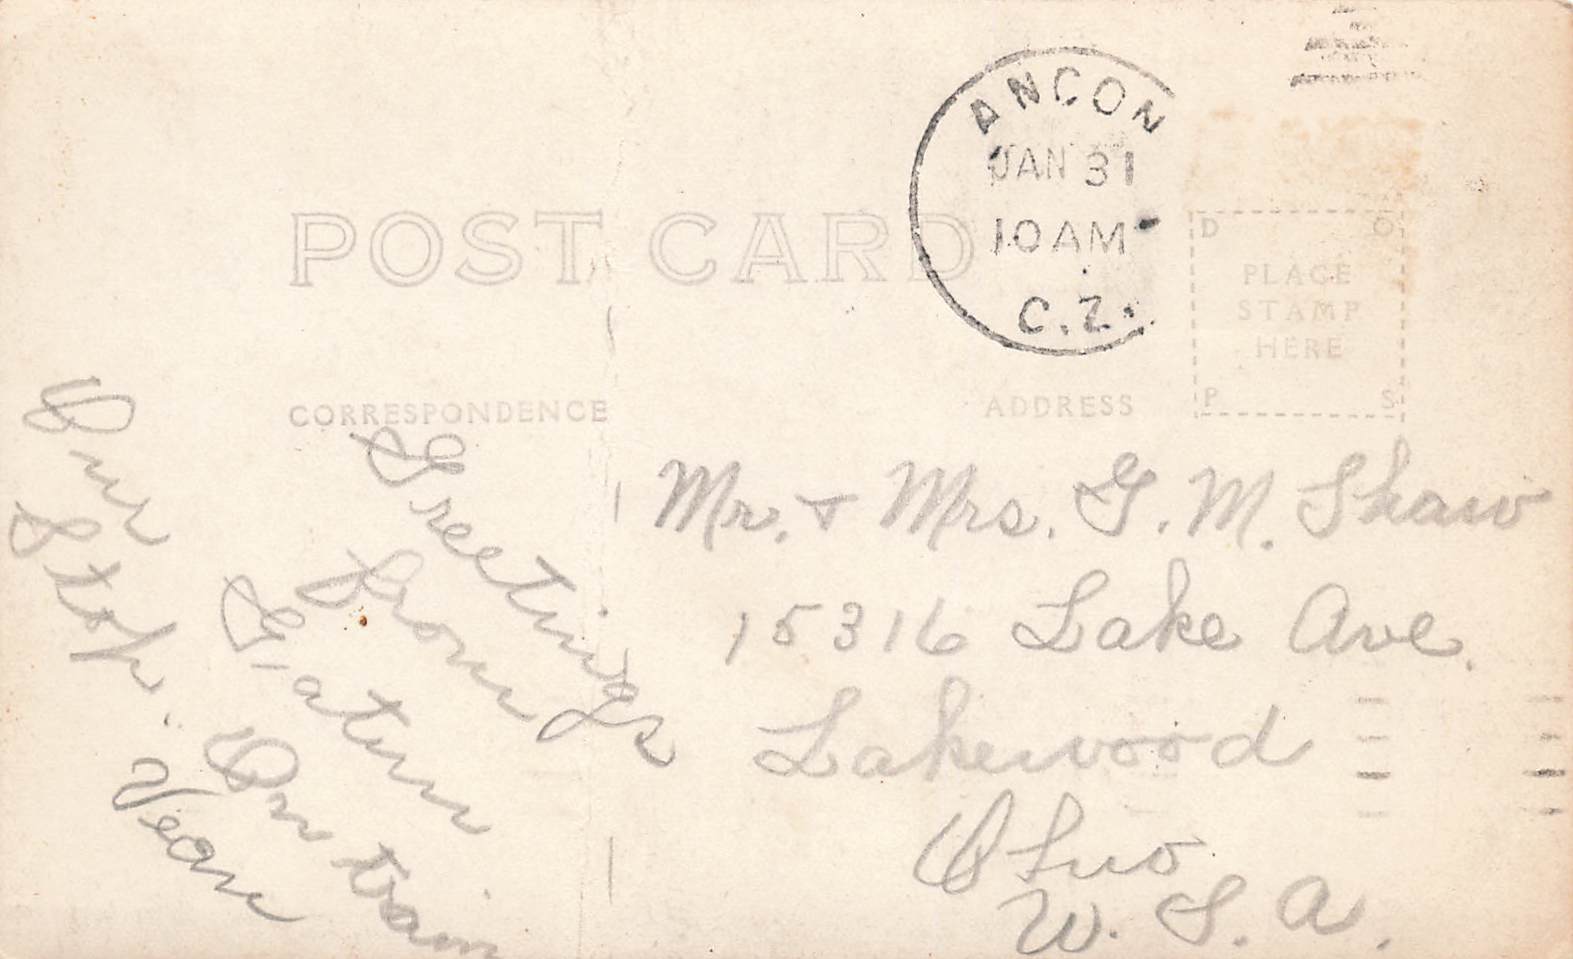 ANCON
JAN 31
10 AM
C.Z.
POST CARD
D O
PLACE
STAMP
HERE
P S
CORRESPONDENCE
ADDRESS
Greetings
from
Gatun
On train
Our
Stop.
Mr. + Mrs. G. M. Shaw
15316 Lake Ave.
Lakewood
Ohio
U. S. A.